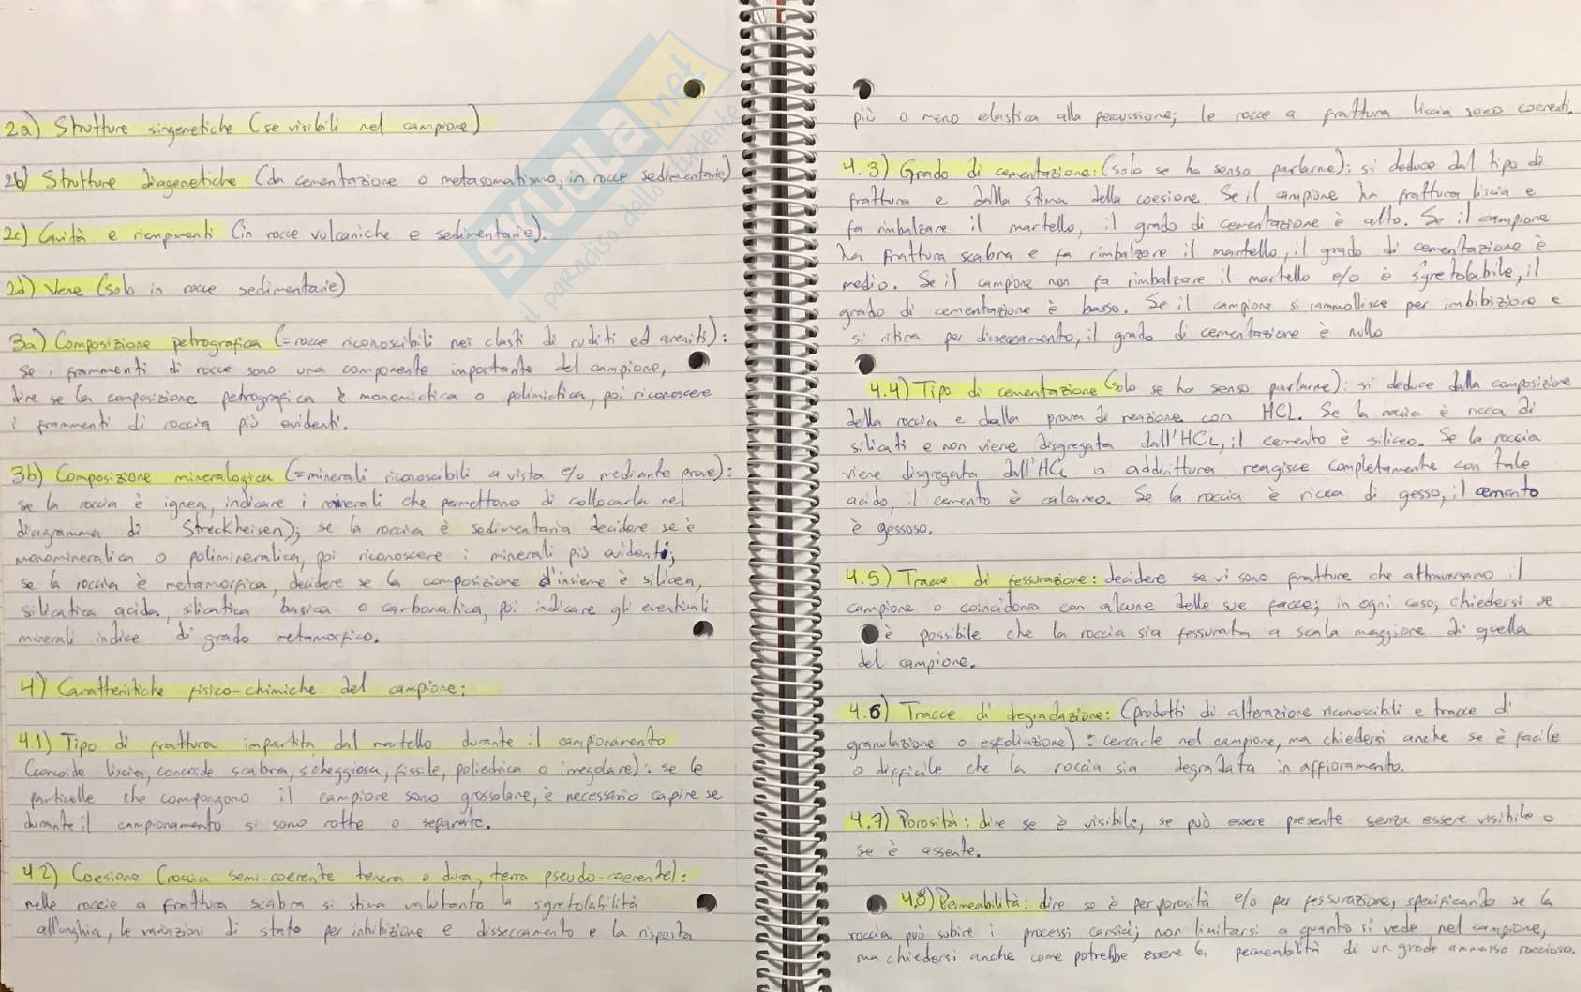 2a) Strutture singenetiche (se visibili nel campione)
2b) Strutture diagenetiche (da cementazione o metasomatismo, in rocce sedimentarie)
2c) Cavità e riempimenti (in rocce vulcaniche e sedimentarie).
2d) Vene (solo in rocce sedimentarie)
3a) Composizione petrografica (=rocce riconoscibili nei clasti di ruditi ed areniti):
se i frammenti di rocce sono una componente importante del campione,
dire se la composizione petrografica è monomictica o polimictica, poi riconoscere
i frammenti di roccia più evidenti.
3b) Composizione mineralogica (=minerali riconoscibili a vista e/o mediante prove):
se la roccia è ignea, indicare i minerali che permettono di collocarla nel
diagramma di Streckheisen); se la roccia è sedimentaria decidere se è
monomineralica o polimineralica, poi riconoscere i minerali più evidenti;
se la roccia è metamorfica, decidere se la composizione d'insieme è silicea,
silicatica acida, silicatica basica o carbonatica, poi indicare gli eventuali
minerali indice di grado metamorfico.
4) Caratteristiche fisico-chimiche del campione:
4.1) Tipo di frattura impartita dal martello durante il campionamento
(concoide liscia, concoide scabra, scheggiosa, fissile, poliedrica o irregolare): se le
particelle che compongono il campione sono grossolane, è necessario capire se
durante il campionamento si sono rotte o separate.
4.2) Coesione (roccia semi-coerente tenera o dura, terra pseudo-coerente):
nelle roccie a frattura scabra si stima valutanto la sgretolabilità
all'unghia, le variazioni di stato per imbibizione e disseccamento e la risposta
più o meno elastica alla percussione; le rocce a frattura liscia sono coerenti.
4.3) Grado di cementazione: (solo se ha senso parlarne): si deduce dal tipo di
frattura e dalla stima della coesione. Se il campione ha frattura liscia e
fa rimbalzare il martello, il grado di cementazione è alto. Se il campione
ha frattura scabra e fa rimbalzare il martello, il grado di cementazione è
medio. Se il campione non fa rimbalzare il martello e/o è sgretolabile, il
grado di cementazione è basso. Se il campione si rammollisce per imbibizione e
si ritira per disseccamento, il grado di cementazione è nullo
4.4) Tipo di cementazione (solo se ha senso parlarne): si deduce dalla composizione
della roccia e dalla prova di reazione con HCL. Se la roccia è ricca di
silicati e non viene disgregata dall'HCL, il cemento è siliceo. Se la roccia
viene disgregata dall'HCL o addirittura reagisce completamente con tale
acido, il cemento è calcareo. Se la roccia è ricca di gesso, il cemento
è gessoso.
4.5) Tracce di fessurazione: decidere se vi sono fratture che attraversano il
campione o coincidono con alcune delle sue facce; in ogni caso, chiedersi se
è possibile che la roccia sia fessurata a scala maggiore di quella
del campione.
4.6) Tracce di degradazione: (prodotti di alterazione riconoscibili e tracce di
granulazione o esfoliazione): cercarle nel campione, ma chiedersi anche se è facile
o difficile che la roccia sia degradata in affioramento.
4.7) Porosità: dire se è visibile, se può essere presente senza essere visibile o
se è assente.
4.8) Permeabilità: dire se è per porosità e/o per fessurazione, specificando se la
roccia può subire i processi carsici; non limitarsi a quanto si vede nel campione,
ma chiedersi anche come potrebbe essere la permeabilità di un grande ammasso roccioso.
SKUOLA.net
il paradiso dello studente